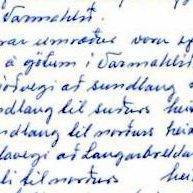 Varmahlíð.
rar umræður voru
á götum í Varmahlíð
þjóðvegi að sundlaug
ndlaug til suðurs
ndlaug til norðurs hei
lavegi að Laugarbrekku
til norðurs hei